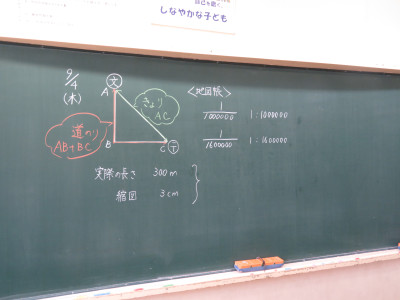 しなやかな子ども
9/4
(木)
文
A
きょり
AC
道のり
AB+BC
B
C
〒
<地図帳>
1/1000000 1:1000000
1/1600000 1:1600000
実際の長さ 300m
縮図 3cm